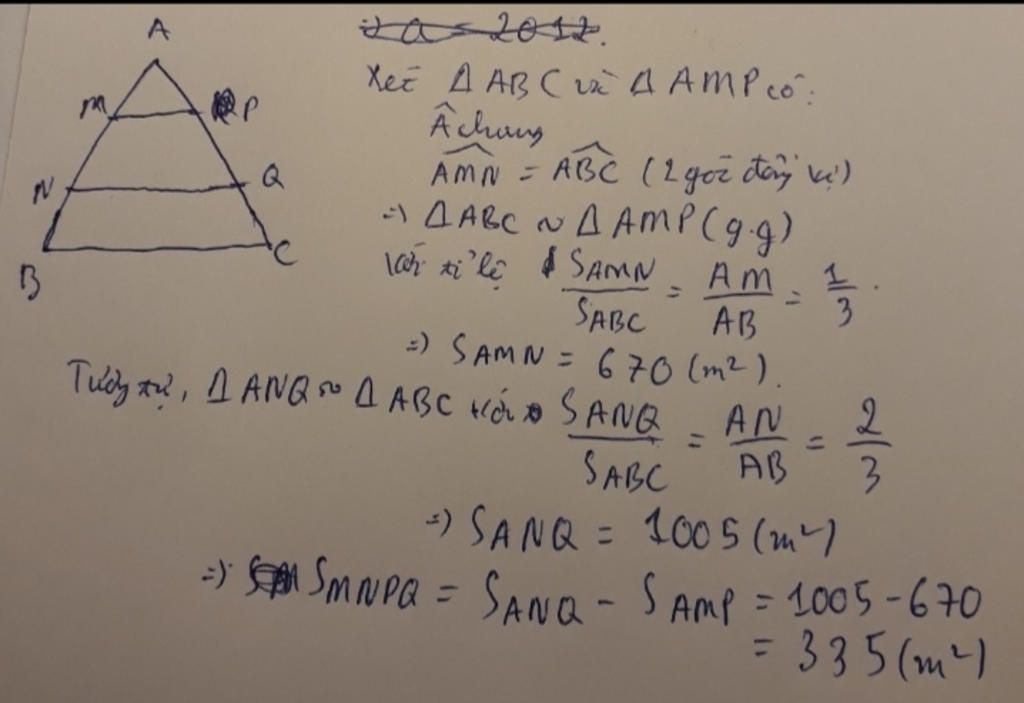 A
M P
N Q
B C
=> a = 2012.
Xét Δ ABC và Δ AMP có:
Â chung
AMN = ABC (2 góc đồng vị)
=> Δ ABC ~ Δ AMP (g.g)
Với tỉ lệ S AMN / S ABC = AM / AB = 1/3.
=> S AMN = 670 (m²).
Tương tự, Δ ANQ ~ Δ ABC với S ANQ / S ABC = AN / AB = 2/3
=> S ANQ = 1005 (m²)
=> S MNPQ = S ANQ - S AMP = 1005 - 670
= 335 (m²)